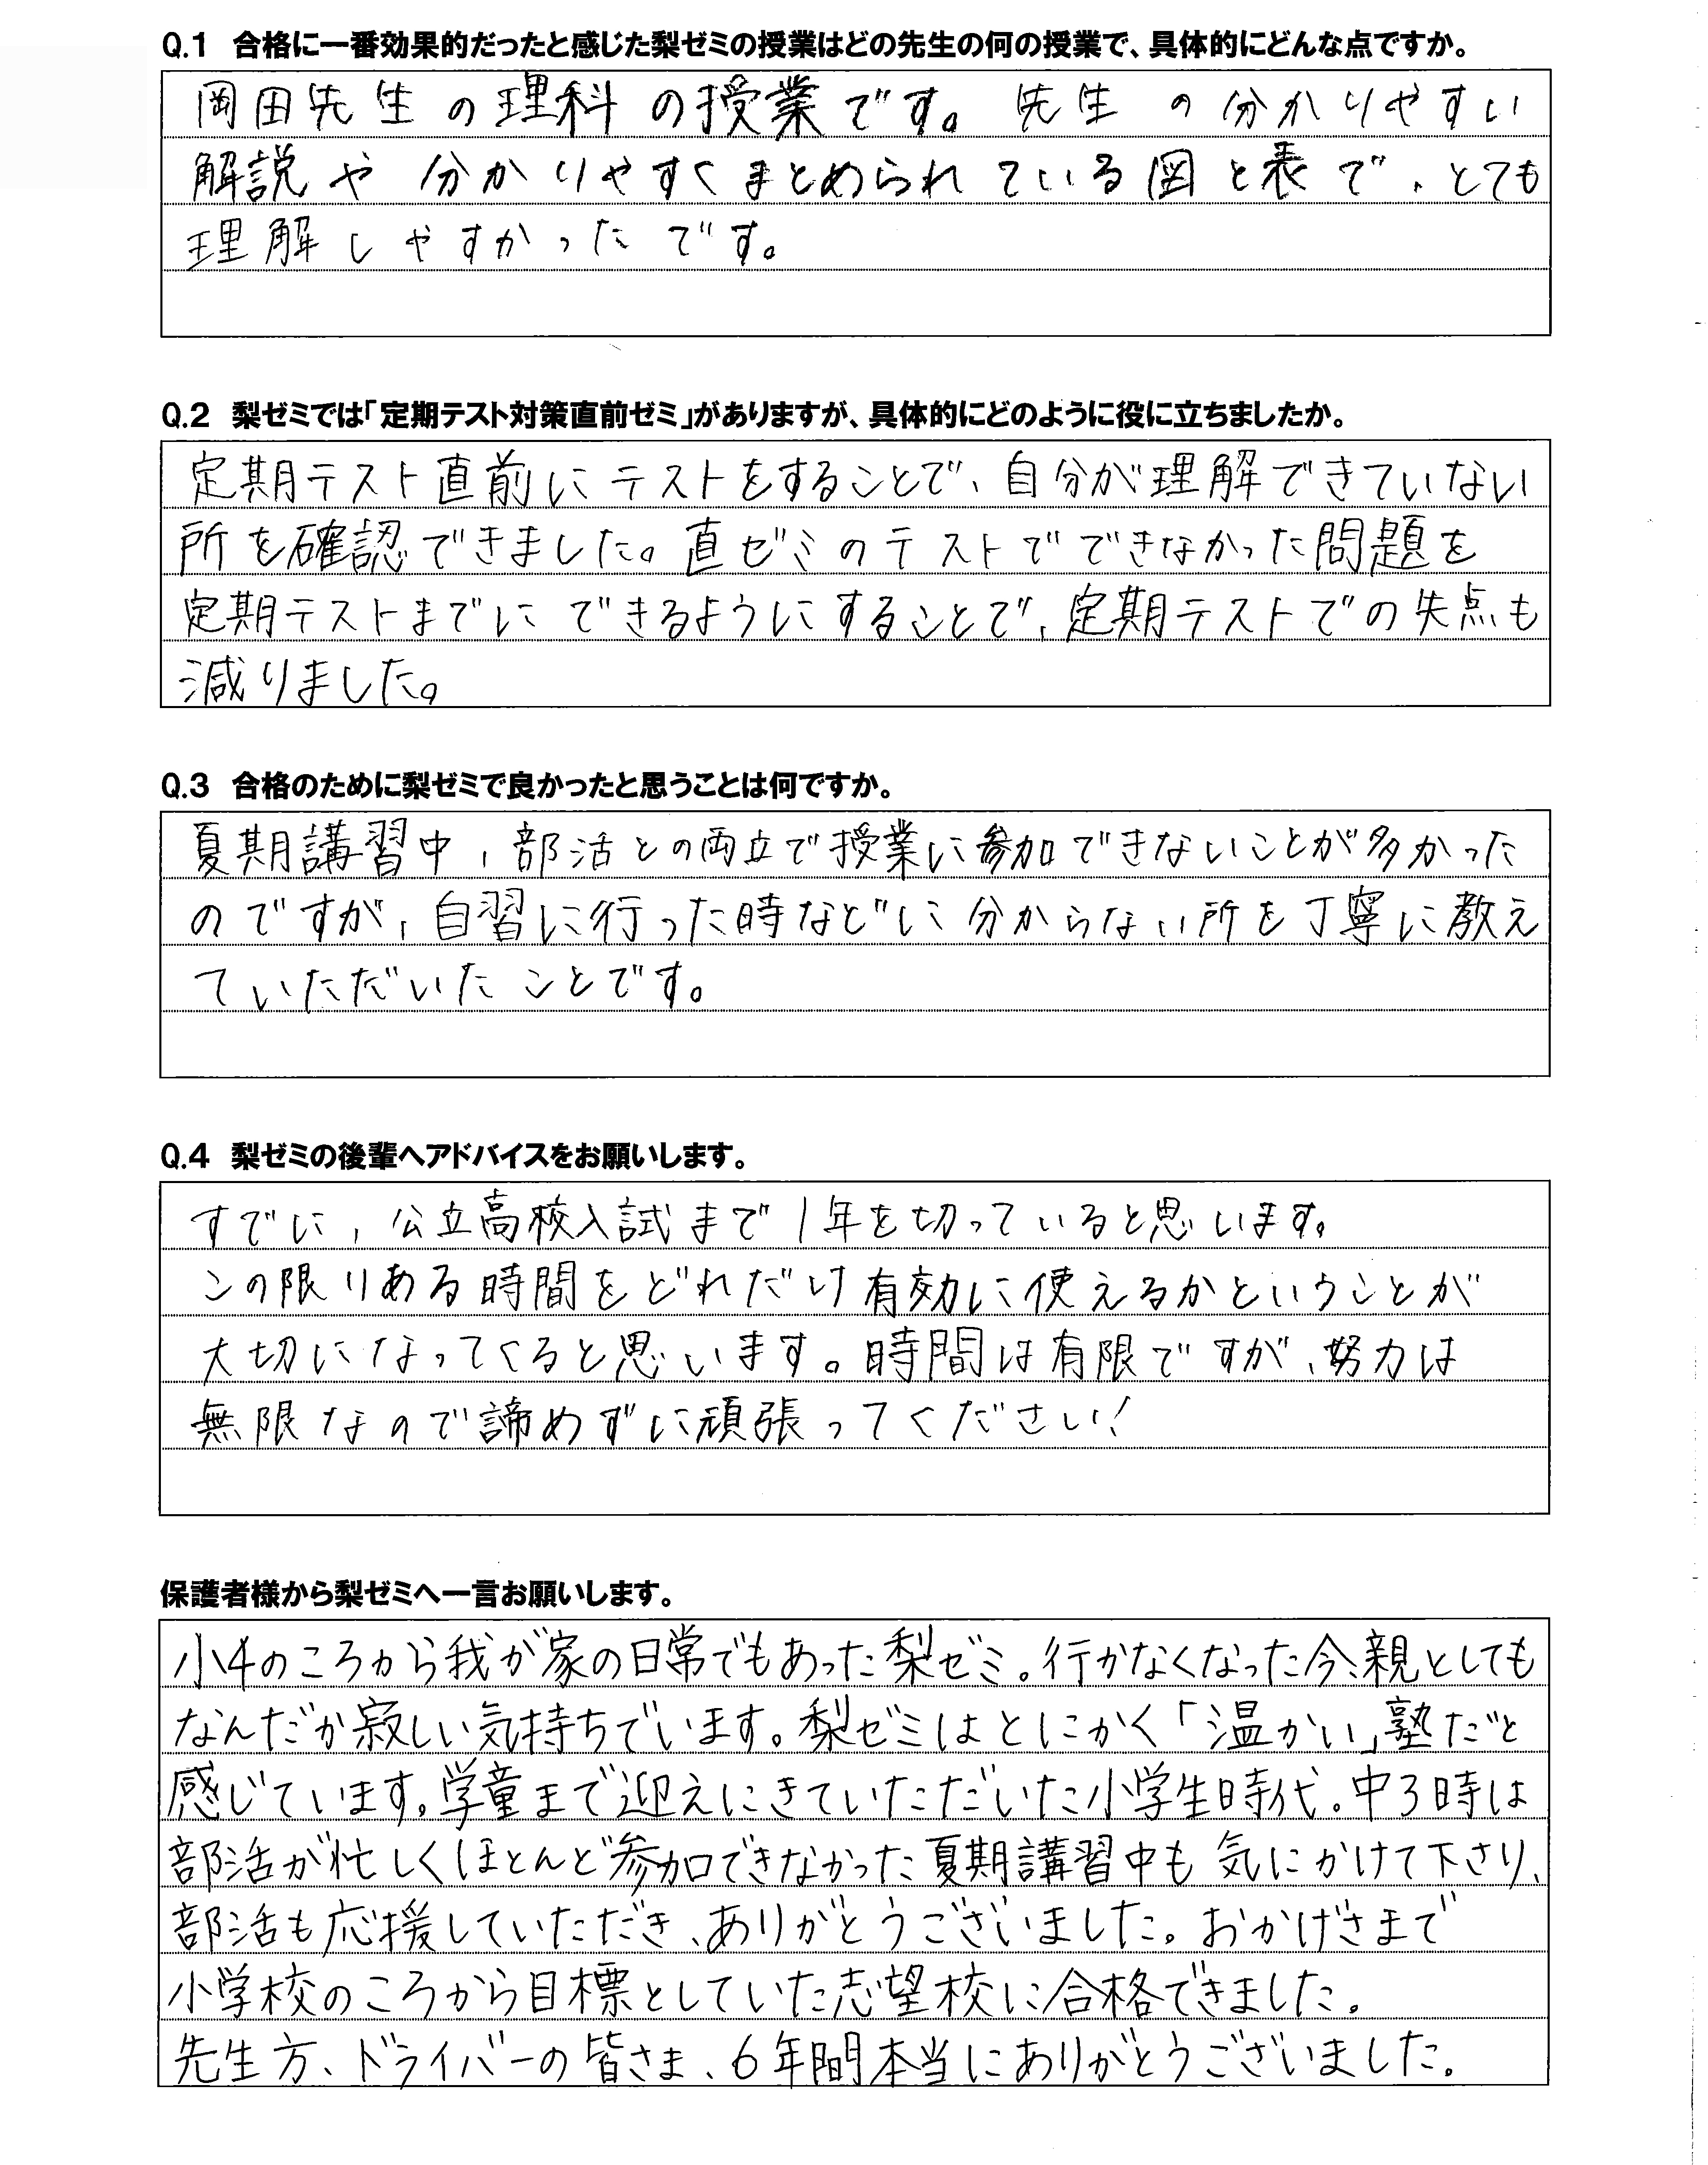 Q.1 合格に一番効果的だったと感じた梨ゼミの授業はどの先生の何の授業で、具体的にどんな点ですか。
岡田先生の理科の授業です。先生の分かりやすい
解説や分かりやすくまとめられている図と表で、とても
理解しやすかったです。
Q.2 梨ゼミでは「定期テスト対策直前ゼミ」がありますが、具体的にどのように役に立ちましたか。
定期テスト直前にテストをすることで、自分が理解できていない
所を確認できました。直ゼミのテストでできなかった問題を
定期テストまでにできるようにすることで、定期テストでの失点も
減りました。
Q.3 合格のために梨ゼミで良かったと思うことは何ですか。
夏期講習中、部活との両立で授業に参加できないことが多かった
のですが、自習に行った時などに分からない所を丁寧に教え
ていただいたことです。
Q.4 梨ゼミの後輩へアドバイスをお願いします。
すでに、公立高校入試まで1年を切っていると思います。
この限りある時間をどれだけ有効に使えるかということが
大切になってくると思います。時間は有限ですが、努力は
無限なので諦めずに頑張ってください!
保護者様から梨ゼミへ一言お願いします。
小4のころから我が家の日常でもあった梨ゼミ。行かなくなった今、親としても
なんだか寂しい気持ちでいます。梨ゼミはとにかく「温かい」塾だと
感じています。学童まで迎えにきていただいた小学生時代。中3時は
部活が忙しくほとんど参加できなかった夏期講習中も気にかけて下さり、
部活も応援していただき、ありがとうございました。おかげさまで
小学校のころから目標としていた志望校に合格できました。
先生方、ドライバーの皆さま、6年間本当にありがとうございました。